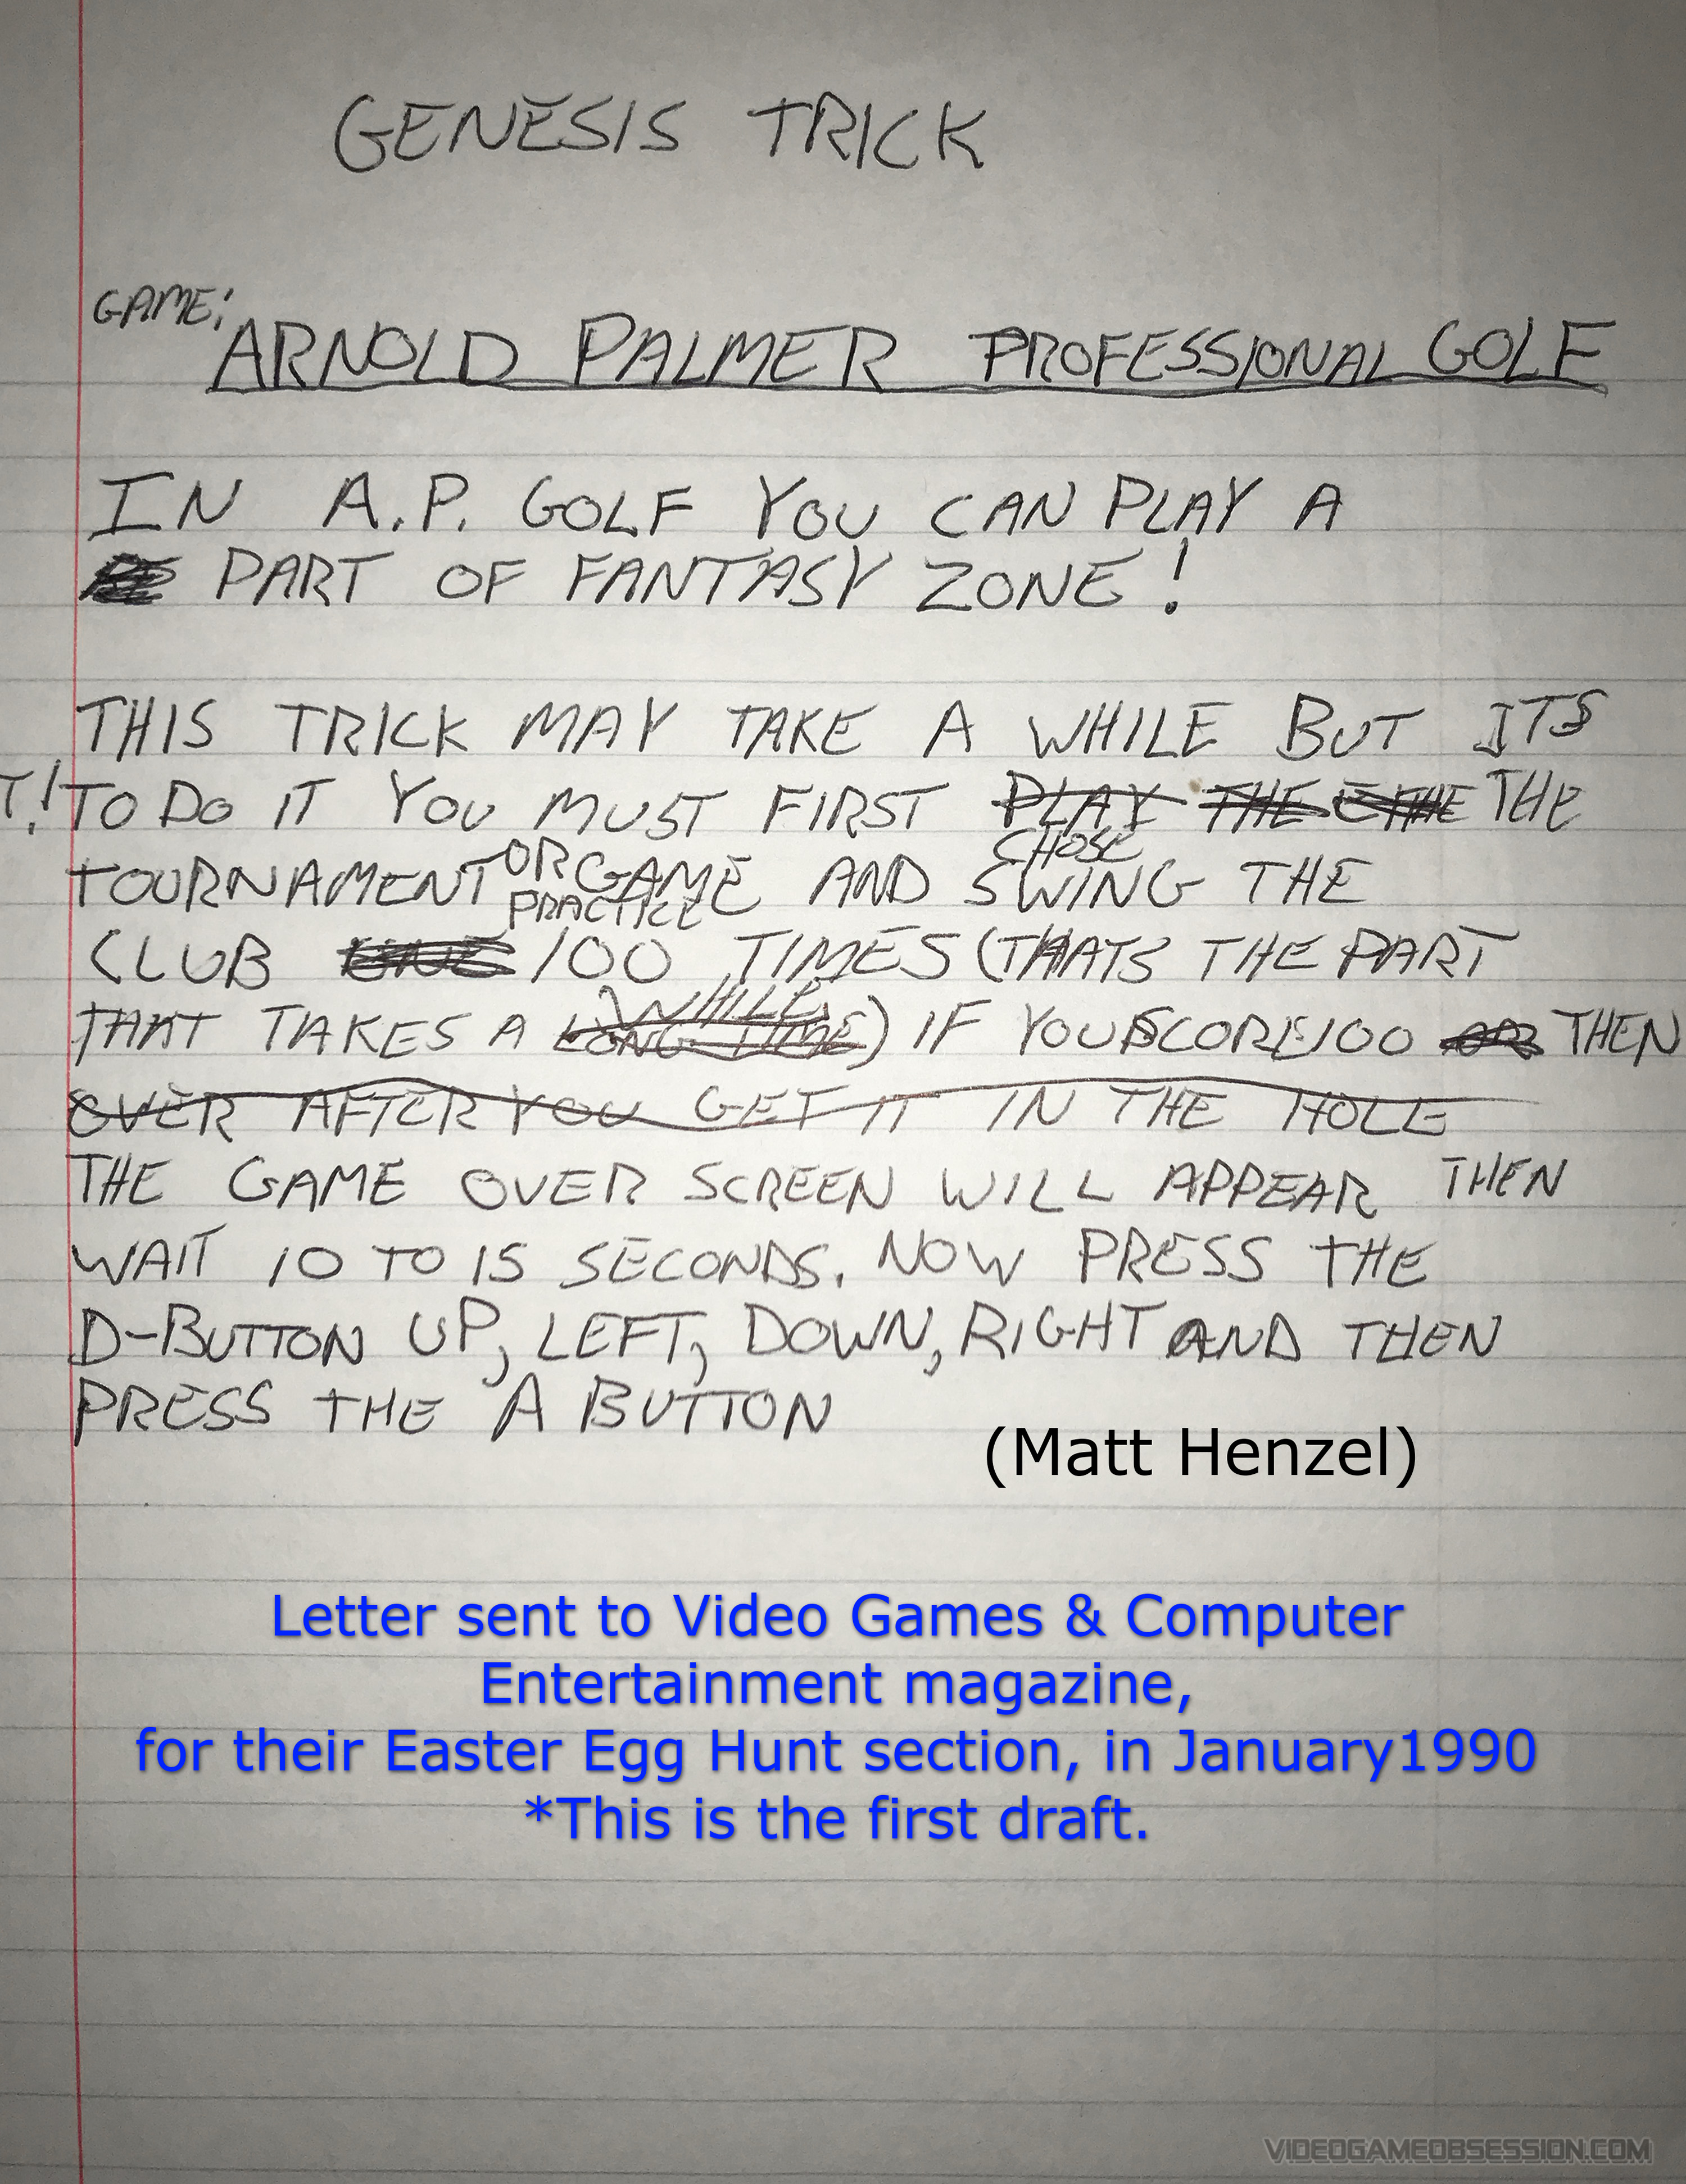 GENESIS TRICK
GAME:
ARNOLD PALMER PROFESSIONAL GOLF
IN A.P. GOLF YOU CAN PLAY A
PART OF FANTASY ZONE!
THIS TRICK MAY TAKE A WHILE BUT ITS
T! TO DO IT YOU MUST FIRST PLAY THE THE THE
CHOSE
TOURNAMENT OR GAME AND SWING THE
PRACTICE
CLUB 100 TIMES (THATS THE PART
WHILE
THAT TAKES A LONG TIME) IF YOU SCORE 100 OR THEN
OVER AFTER YOU GET IT IN THE HOLE
THE GAME OVER SCREEN WILL APPEAR THEN
WAIT 10 TO 15 SECONDS. NOW PRESS THE
D-BUTTON UP, LEFT, DOWN, RIGHT AND THEN
PRESS THE A BUTTON
(Matt Henzel)
Letter sent to Video Games & Computer
Entertainment magazine,
for their Easter Egg Hunt section, in January1990
*This is the first draft.
VIDEOGAMEOBSESSION.COM